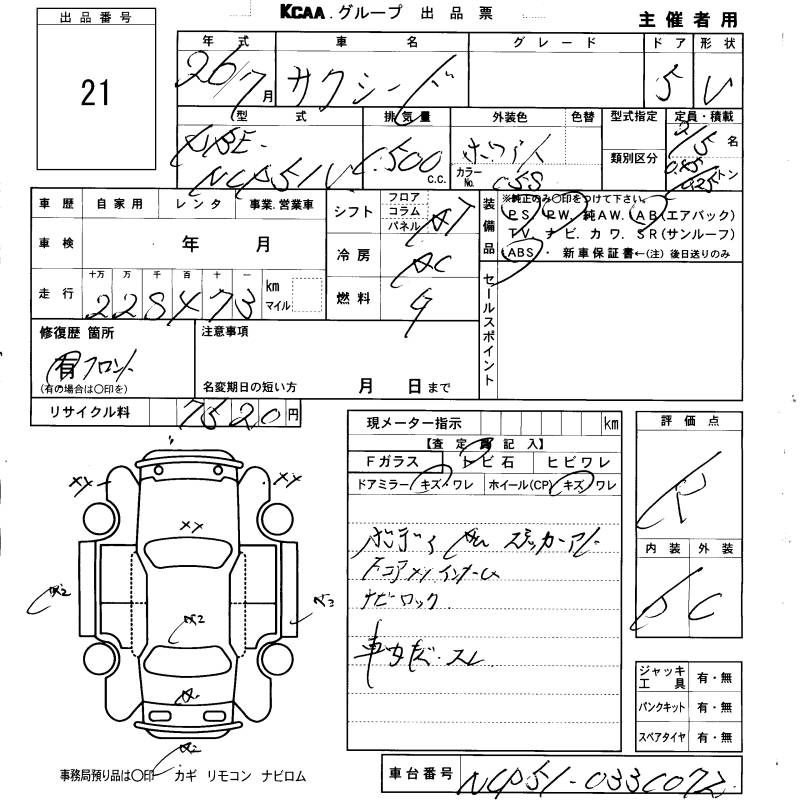 KCAA.グループ 出品票
主催者用
出品番号
21
年式 車名 グレード ドア 形状
26/7月 サクシード 5 V
型式 排気量 外装色 色替 型式指定 定員・積載
DBE-
NCP51V 1,500 c.c. ホワイト
カラーNo. 058
類別区分
2/5 名
0.45/0.25 トン
車歴 自家用 レンタ 事業.営業車
車検 年 月
走行 十万 万 千 百 十 一
228473 km マイル
シフト フロア コラム パネル AT
冷房 AC
燃料 G
装備品
※純正のみ○印をつけて下さい。
PS. PW. 純AW. AB(エアバック)
TV. ナビ. カワ. SR(サンルーフ)
ABS. 新車保証書←(注)後日送りのみ
セールスポイント
修復歴 箇所
有 フロント
(有の場合は○印を)
注意事項
名変期日の短い方 月 日まで
リサイクル料 7520円
現メーター指示 km
【査定員記入】
Fガラス トビ石 ヒビワレ
ドアミラー キズ・ワレ ホイール(CP) キズ・ワレ
ボディ ステッカーアト
Fコアxx インナー
ナビロック
スレ
評価点
R
内装 外装
D C
ジャッキ工具 有・無
パンクキット 有・無
スペアタイヤ 有・無
XX XX
XX
A2
事務局預り品は○印 カギ リモコン ナビロム
車台番号 NCP51-0330072